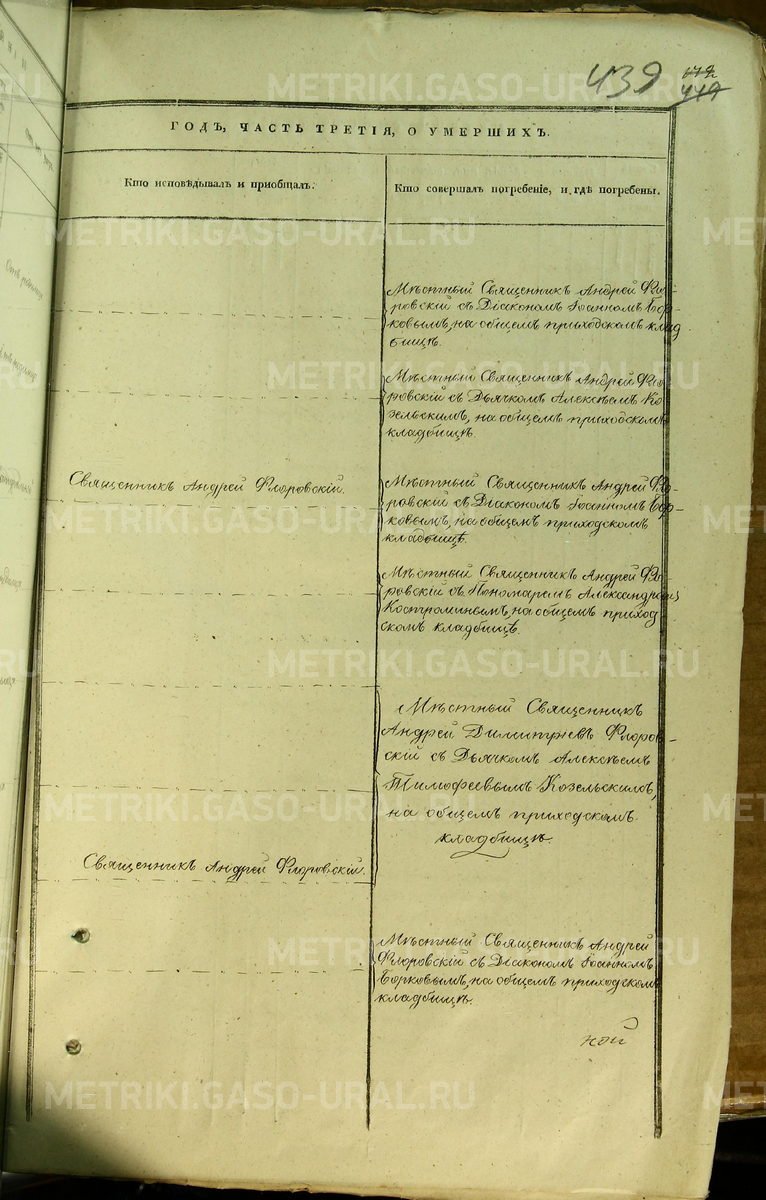 439
449
ГОДЪ, ЧАСТЬ ТРЕТІЯ, О УМЕРШИХЪ.
Кто исповѣдывалъ и приобщалъ.
Кто совершалъ погребеніе, и гдѣ погребены.
Мѣстный Священникъ Андрей Фло-
ровскій съ Діакономъ Іоанномъ Бор-
ковымъ, на общемъ приходскомъ клад
бищѣ.
Мѣстный Священникъ Андрей Фло-
ровскій съ Дьячкомъ Алексѣемъ Ко
зельскимъ, на общемъ приходскомъ
кладбищѣ.
Священникъ Андрей Флоровскій.
Мѣстный Священникъ Андрей Фло-
ровскій съ Діакономъ Іоанномъ Бор-
ковымъ, на общемъ приходскомъ
кладбищѣ.
Мѣстный Священникъ Андрей Фло
ровскій съ Пономаремъ Александромъ
Костроминымъ, на общемъ приход
скомъ кладбищѣ.
Мѣстный Священникъ
Андрей Димитріевъ Флоров-
скій съ Дьячкомъ Алексѣемъ
Тимофеевымъ Козельскимъ,
на общемъ приходскомъ
кладбищѣ.
Священникъ Андрей Флоровскій.
Мѣстный Священникъ Андрей
Флоровскій съ Діакономъ Іоанномъ
Борковымъ, на общемъ приходскомъ
кладбищѣ.
ной
METRIKI.GASO-URAL.RU